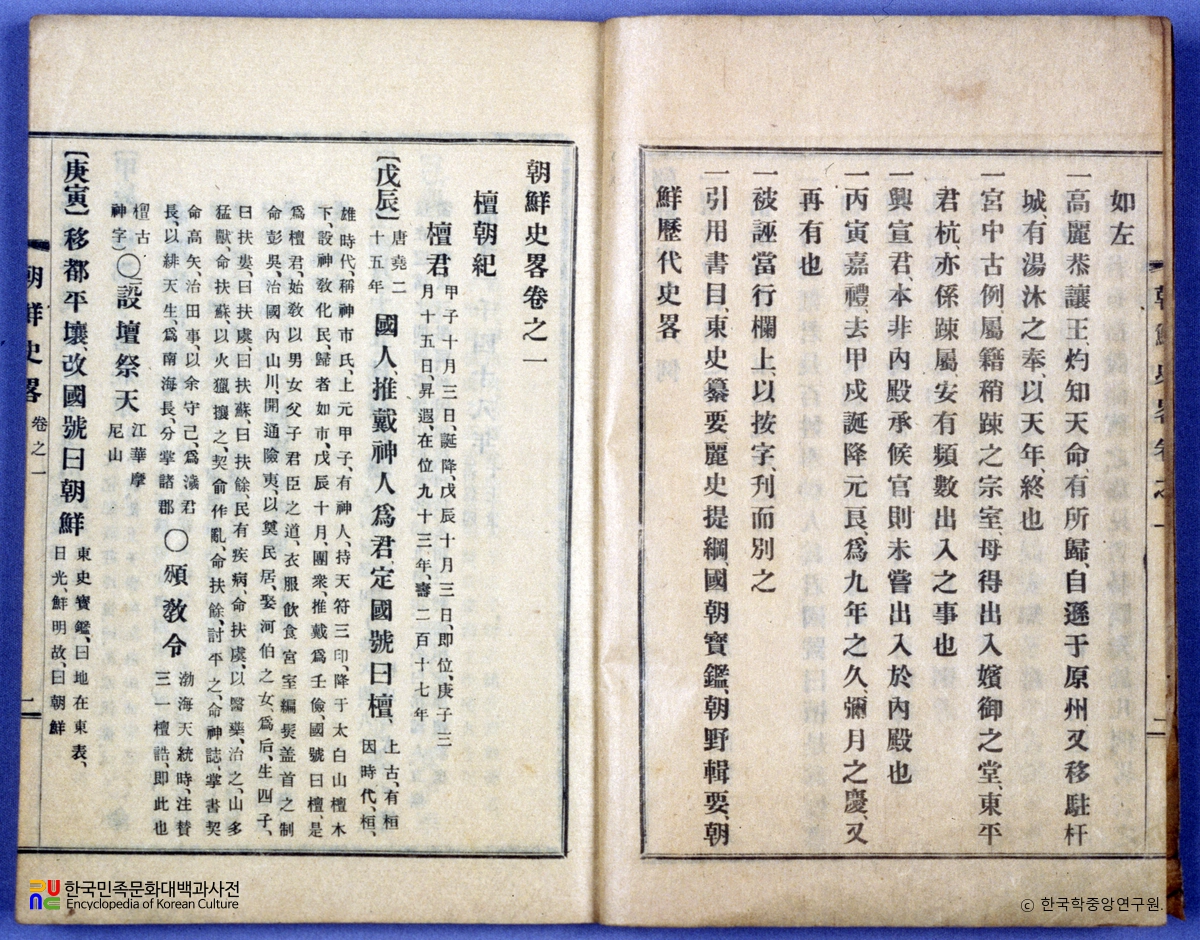 如左
一高麗恭讓王、灼知天命、有所歸、自遜于原州又移駐杆
城、有湯沐之奉、以天年、終也
一宮中古例、屬籍稍踈之宗室、毋得出入嬪御之堂、東平
君杭、亦係踈屬、安有頻數出入之事也
一興宣君、本非內殿承候官則未嘗出入於內殿也
一丙寅嘉禮、去甲戌誕降元良、爲九年之久、彌月之慶、又
再有也
一被誣當行欄上、以按字、刋而別之
一引用書目、東史纂要麗史提綱、國朝寶鑑、朝野輯要、朝
鮮歷代史畧
朝鮮史畧卷之一
檀朝紀
檀君 甲子十月三日、誕降、戊辰十月三日、卽位、庚子三
月十五日、昇遐、在位九十三年、壽二百十七年
〔戊辰〕唐堯二
十五年
國人、推戴神人爲君、定國號曰檀、
上古、有桓
因時代、桓、
雄時代、稱神市氏、上元甲子、有神人、持天符三印、降于太白山檀木
下、設神敎化民、歸者如市、戊辰十月、團衆、推戴爲壬儉、國號曰檀、是
爲檀君、始敎以男女父子君臣之道、衣服飮食宮室編髮盖首之制
命彭吳、治國內山川、開通險夷、以奠民居、娶河伯之女、爲后、生四子、
曰扶婁、曰扶虞、曰扶蘇、曰扶餘、民有疾病、命扶虞、以醫藥、治之、山多
猛獸、命扶蘇以火獵攘之、契兪作亂、命扶餘、討平之、命神誌、掌書契
命高矢、治田事、以余守己、爲濊君
長、以緋天生、爲南海長、分掌諸郡
〇頒敎令
渤海天統時、注贊
三一檀誥、卽此也
檀古
神字〕
〇設壇祭天
江華摩
尼山
〔庚寅〕移都平壤、改國號曰朝鮮
東史寶鑑、曰地在東表、
日光、鮮明故、曰朝鮮
朝鮮史畧 卷之一
二
한국민족문화대백과사전
Encyclopedia of Korean Culture
ⓒ 한국학중앙연구원.